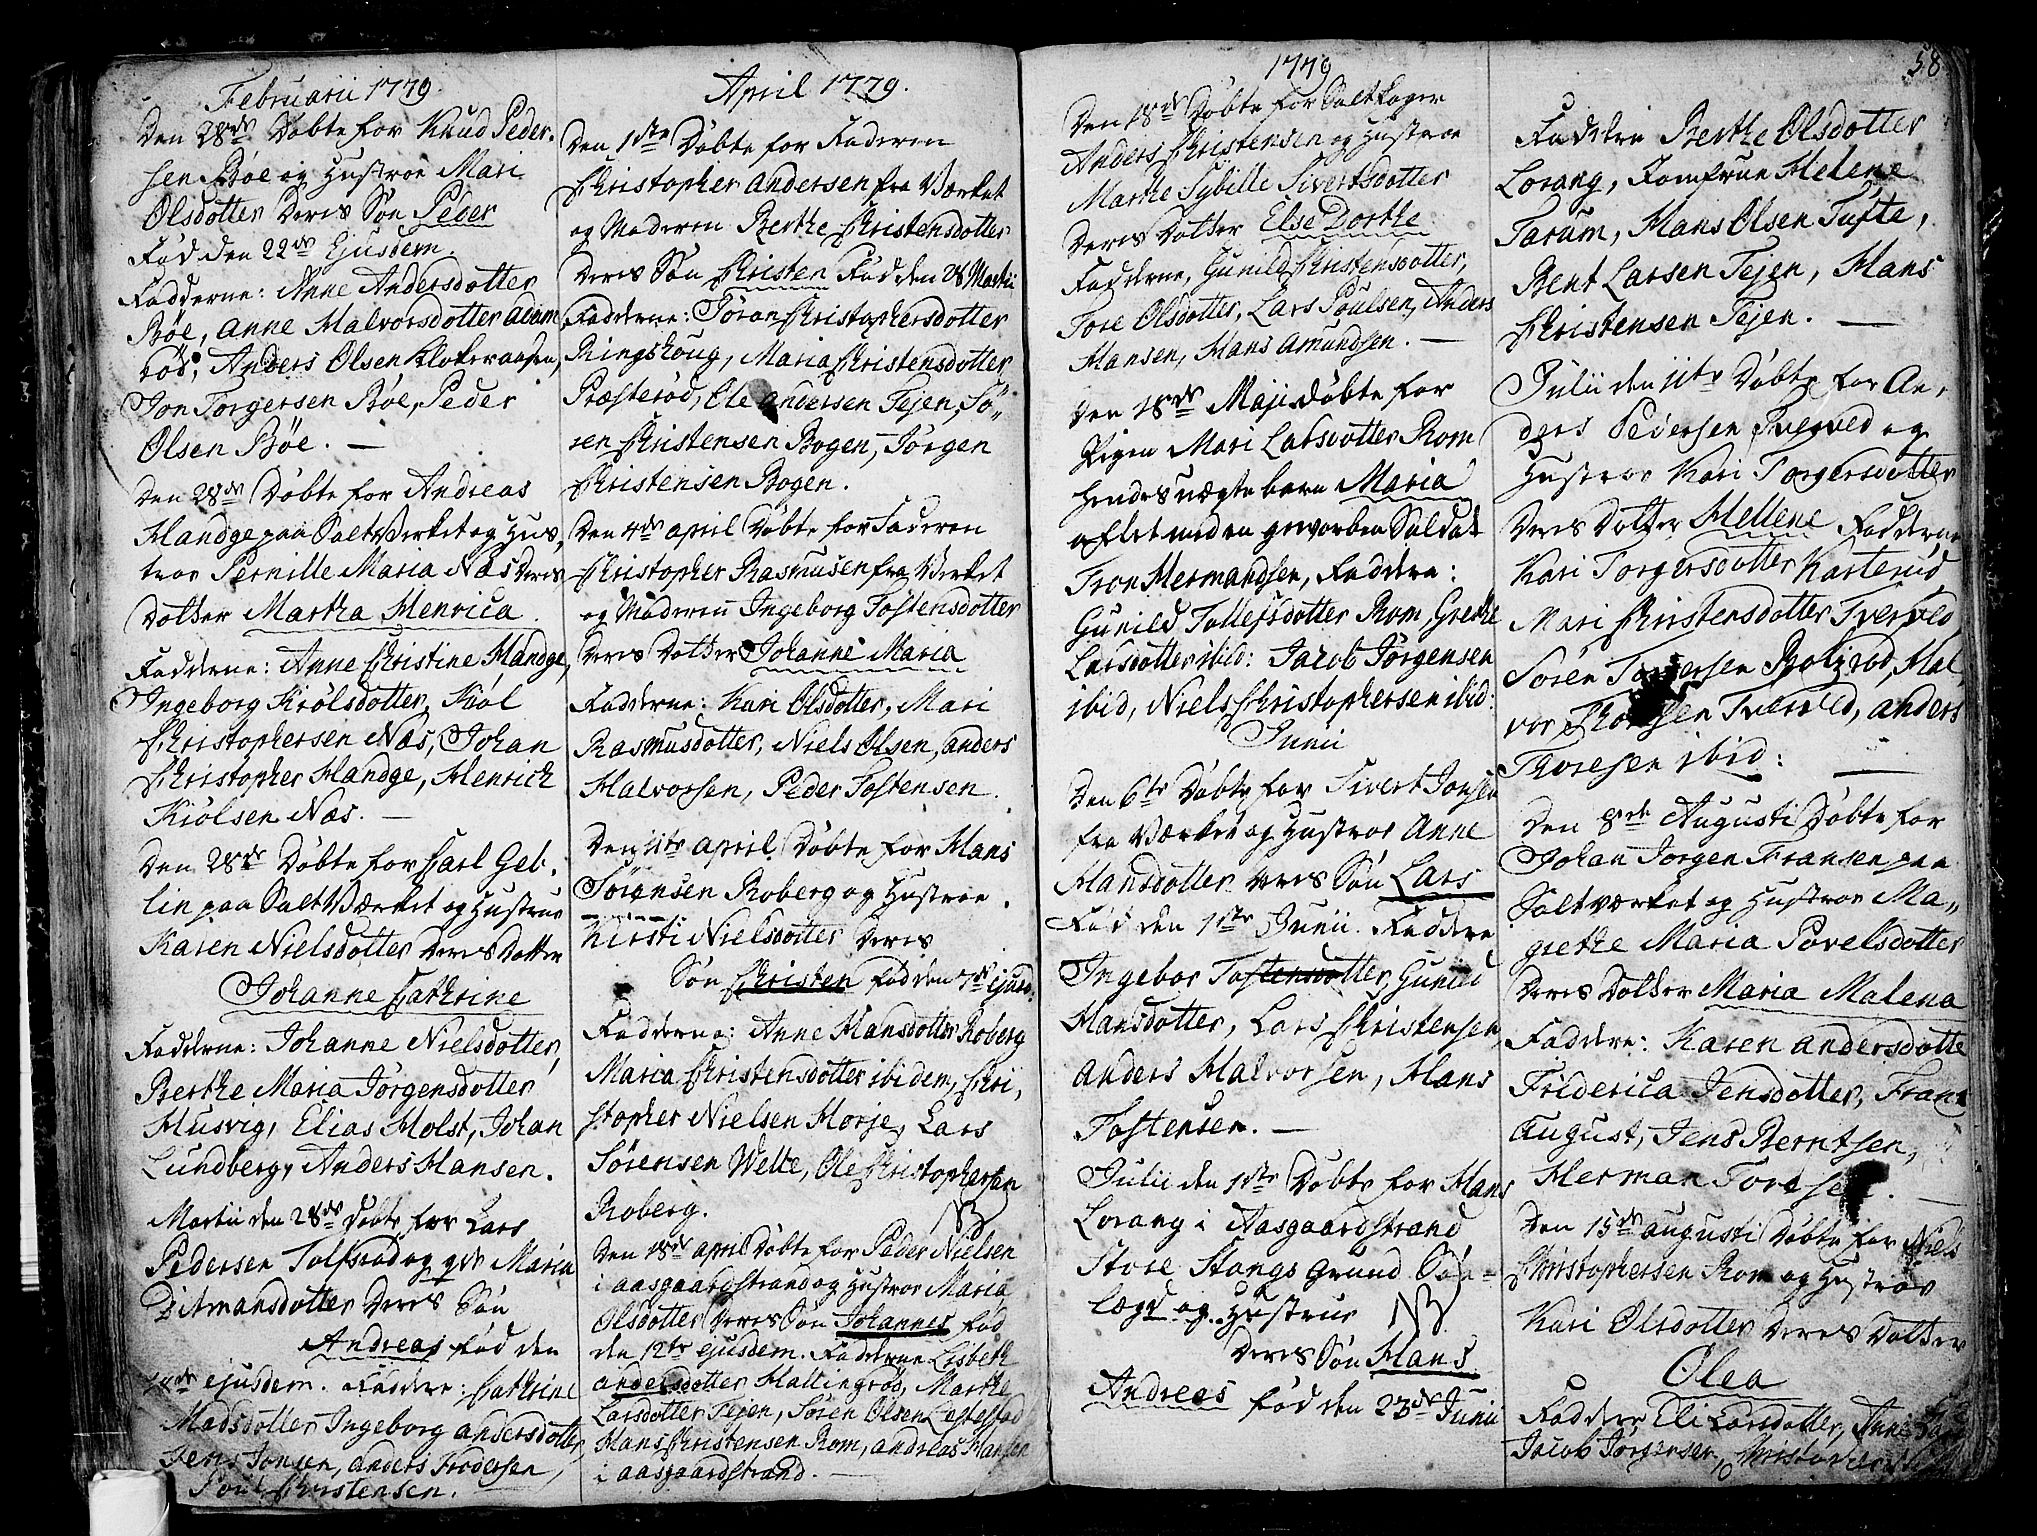 Februarii 1779
Den 28de Døbte for Knud Peder-
sen Bøe og Hustroe Mari
Olsdotter Deres Søn Peder
Fød den 22de Ejusdem.
Fadderne: Anne Andersdotter
Bøe, Anne Halvorsdotter Adam
rød, Anders Olsen Klokeraasen,
Jon Torgersen Bøe, Peder
Olsen Bøe. —
Den 28de Døbte for Andreas
Handge paa SaltVerket og Hus,
troe Pernille Maria Næs Deres
Dotter Martha Henrica.
Fadderne: Anne Christine Handge,
Ingeborg Kiølsdotter, Kiøl
Christophersen Næs, Johan
Christopher Handge, Henrich
Kiølsen Næs. —
Den 28de Døbte for Carl Geb-
lin paa SaltVærket og Hustrue
Karen Nielsdotter Deres Dotter
Johanne Cathrine
Fadderne: Johanne Nielsdotter,
Berthe Maria Jørgensdotter
Husvig, Elias Holst, Johan
Lundberg, Anders Hansen.
Martii den 28de Døbte for Lars
Pedersen Tolfsrød og Maria
Ditmansdotter Deres Søn
Andreas fød den
ejusdem. Faddere: Cathrine
Madsdotter Ingeborg Andersdotter,
Jens Jonsen, Anders Frodersen,
Poul Christensen.
April 1779.
Den 1ste Døbte for Faderen
Christopher Andersen fra Værket
og Moderen Berthe Christensdotter
Deres Søn Christen Fød den 28 Martii
Fadderne: Tøran Christophersdotter
Ringshoug, Maria Christensdotter
Præsterød, Ole Andersen Fejen, Sø-
ren Christensen Bogen, Jørgen
Christensen Bogen.
Den 4de April Døbte for Faderen
Christopher Rasmusen fra Verket
og Moderen Ingeborg Tostensdotter
Deres Dotter Johanne Maria
Fadderne: Kari Olsdotter, Mari
Rasmusdotter, Niels Olsen, Anders
Halvorsen, Peder Tostensen.
Den 11te April Døbte for Hans
Sørensen Roberg og Hustroe.
Kirsti Nielsdotter Deres
Søn Christen fød den 7de ejusd.
Fadderne: Anne Hansdotter Roberg
Maria Christensdotter ibidem, Chri,
stopher Nielsen Horje, Lars
Sørensen Welle, Ole Christophersen
Roberg.
NB
Den 18de April Døbte for Peder Nielsen
i Aasgaardstrand og Hustroe Maria
Olsdotter Deres Søn Johannes fød
den 12te ejusdem. Fadderne Lisbeth
Andersdotter Hallingrød, Marthe
Larsdotter Fejen, Søren Olsen Lestestad
Hans Christensen Rom, Andreas Hansen
i Aasgaardstrand. —
1779
Den 18de Døbte for Saltkoger
Anders Christensen og Hustroe
Marthe Sybille Sivertsdotter
Deres Dotter Else Dorthe
Fadderne, Gunild Christensdotter,
Tore Olsdotter, Lars Poulsen, Anders
Hansen, Hans Amundsen. —
Den 18de Maji Døbte for
Pigen Mari Larsdotter Rom
hendes uægte barn Maria
aflet med en gevorben Soldat
Tron Hermandsen, Faddere:
Gunild Tollefsdotter Rom, Grethe
Larsdotter ibid: Jacob Jørgensen
ibid, Niels Christophersen ibid:
Junii
Den 6te Døbte for Sivert Jonsen
fra Værket og Hustroe Anne
Hansdotter Deres Søn Lars
Fød den 1ste Junii. Faddere
Ingebor Tostensdotter, Gunild
Hansdotter, Lars Christensen,
Anders Halvorsen, Hans
Tostensen. —
Julii den 1ste Døbte for Hans
Lorang i Aasgaardstrand
Store Stangs Grund Søn-
lægd og Hustrue NB
Deres Søn Hans
Andreas fød den 23de Junii
58
Faddere Berthe Olsdotter
Lorang, Jomfrue Helene
Tarum, Hans Olsen Tufte,
Bent Larsen Fejen, Hans
Christensen Fejen. —
Julii den 11te Døbte for An,
ders Pedersen Tverved og
Hustroe Kari Torgersdotter
Deres Dotter Hellene Fadderne
Kari Torgersdotter Karterud
Mari Christensdotter Tverved,
Søren Rolirød, Hal,
vor Tverved, Anders
Thoresen ibid: —
Den 8de Augusti Døbte for
Johan Jørgen Fransen paa
Saltværket og Hustroe Ma-
grethe Maria Povelsdotter
Deres Dotter Maria Malena
Faddere: Karen Andersdotte
Friderica Jensdotter, Frans
August, Jens Berntsen,
Herman Toresen. —
Den 15de Augusti Døbte for Niels
Christophersen Rom og Hustroe
Kari Olsdotter Deres Dotter
Olea
Faddere Eli Larsdotter, Anne
Jacob Jørgensen,